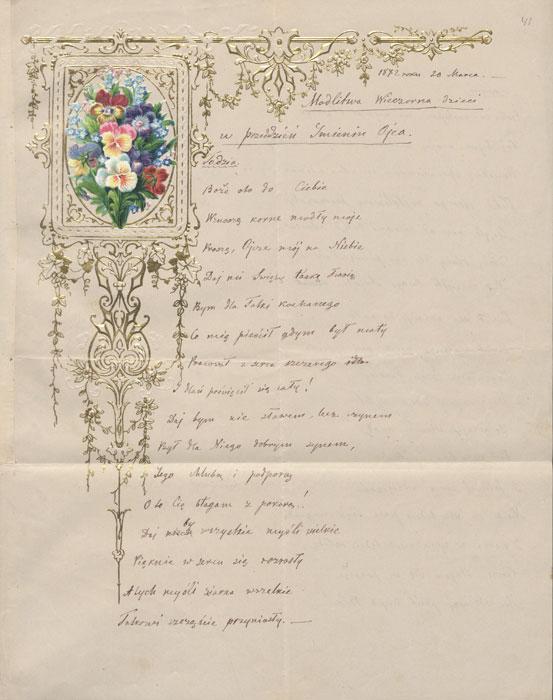 41
1872 roku 20 Marca. —
Modlitwa Wieczorna dzieci
w przeddzień Imienin Ojca.
Boże oto do Ciebie
Wznoszę korne modły moje
Wszak, Ojcze mój na Niebie
Daj mi Świętą łaskę Twoją
Bym dla Tatki kochanego
Co mię pieścił gdym był mały
Pracował z serca szczerego
I Mu poświęcił się cały!
Daj bym nie słowem, lecz czynem
Był dla Niego dobrym synem,
Jego chlubą i podporą
O to Cię błagam z pokorą..!
Daj by wszystkie myśli wielkie
Pięknie w sercu się rozrosły
A tych myśli ziarna wszelkie
Tatkowi szczęście przyniosły. —